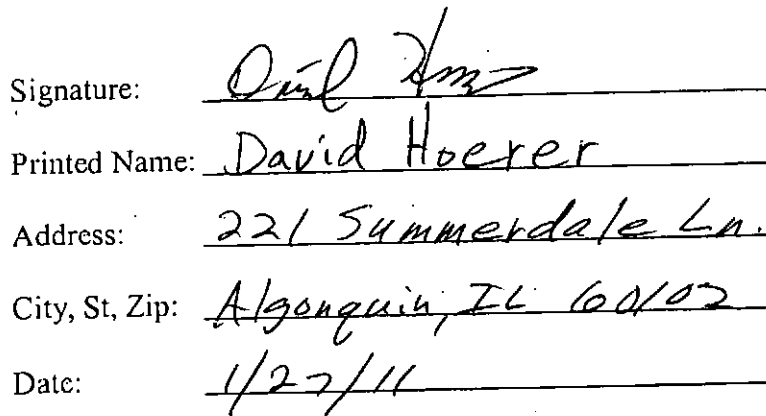 Signature:
Printed Name: David Hoerer
Address: 221 Summerdale Ln.
City, St, Zip: Algonquin, IL 60102
Date: 1/27/11